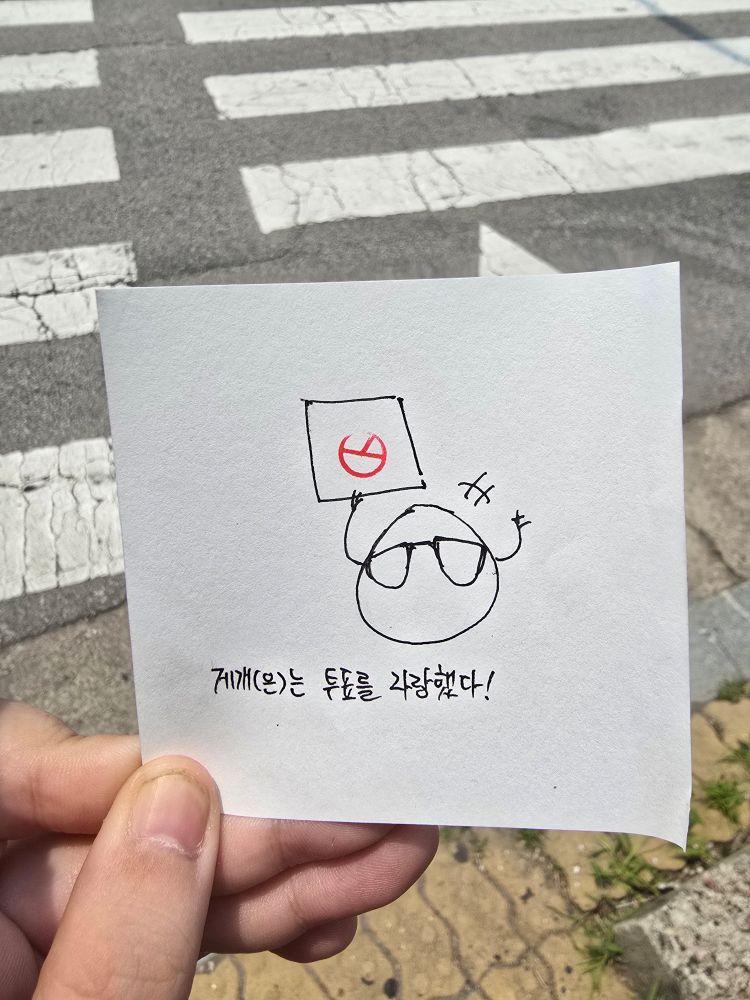 제개(몬)는 투표를 자랑했다!